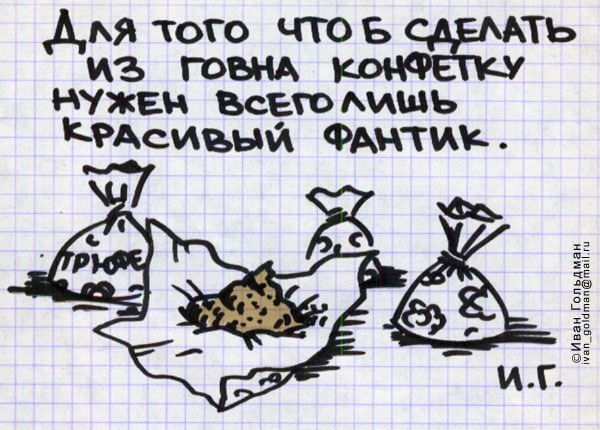 Для того чтоб сделать
из говна конфетку
нужен всего лишь
красивый фантик.
ТРЮФЕ
И.Г.
©Иван Гольдман
ivan_goldman@mail.ru